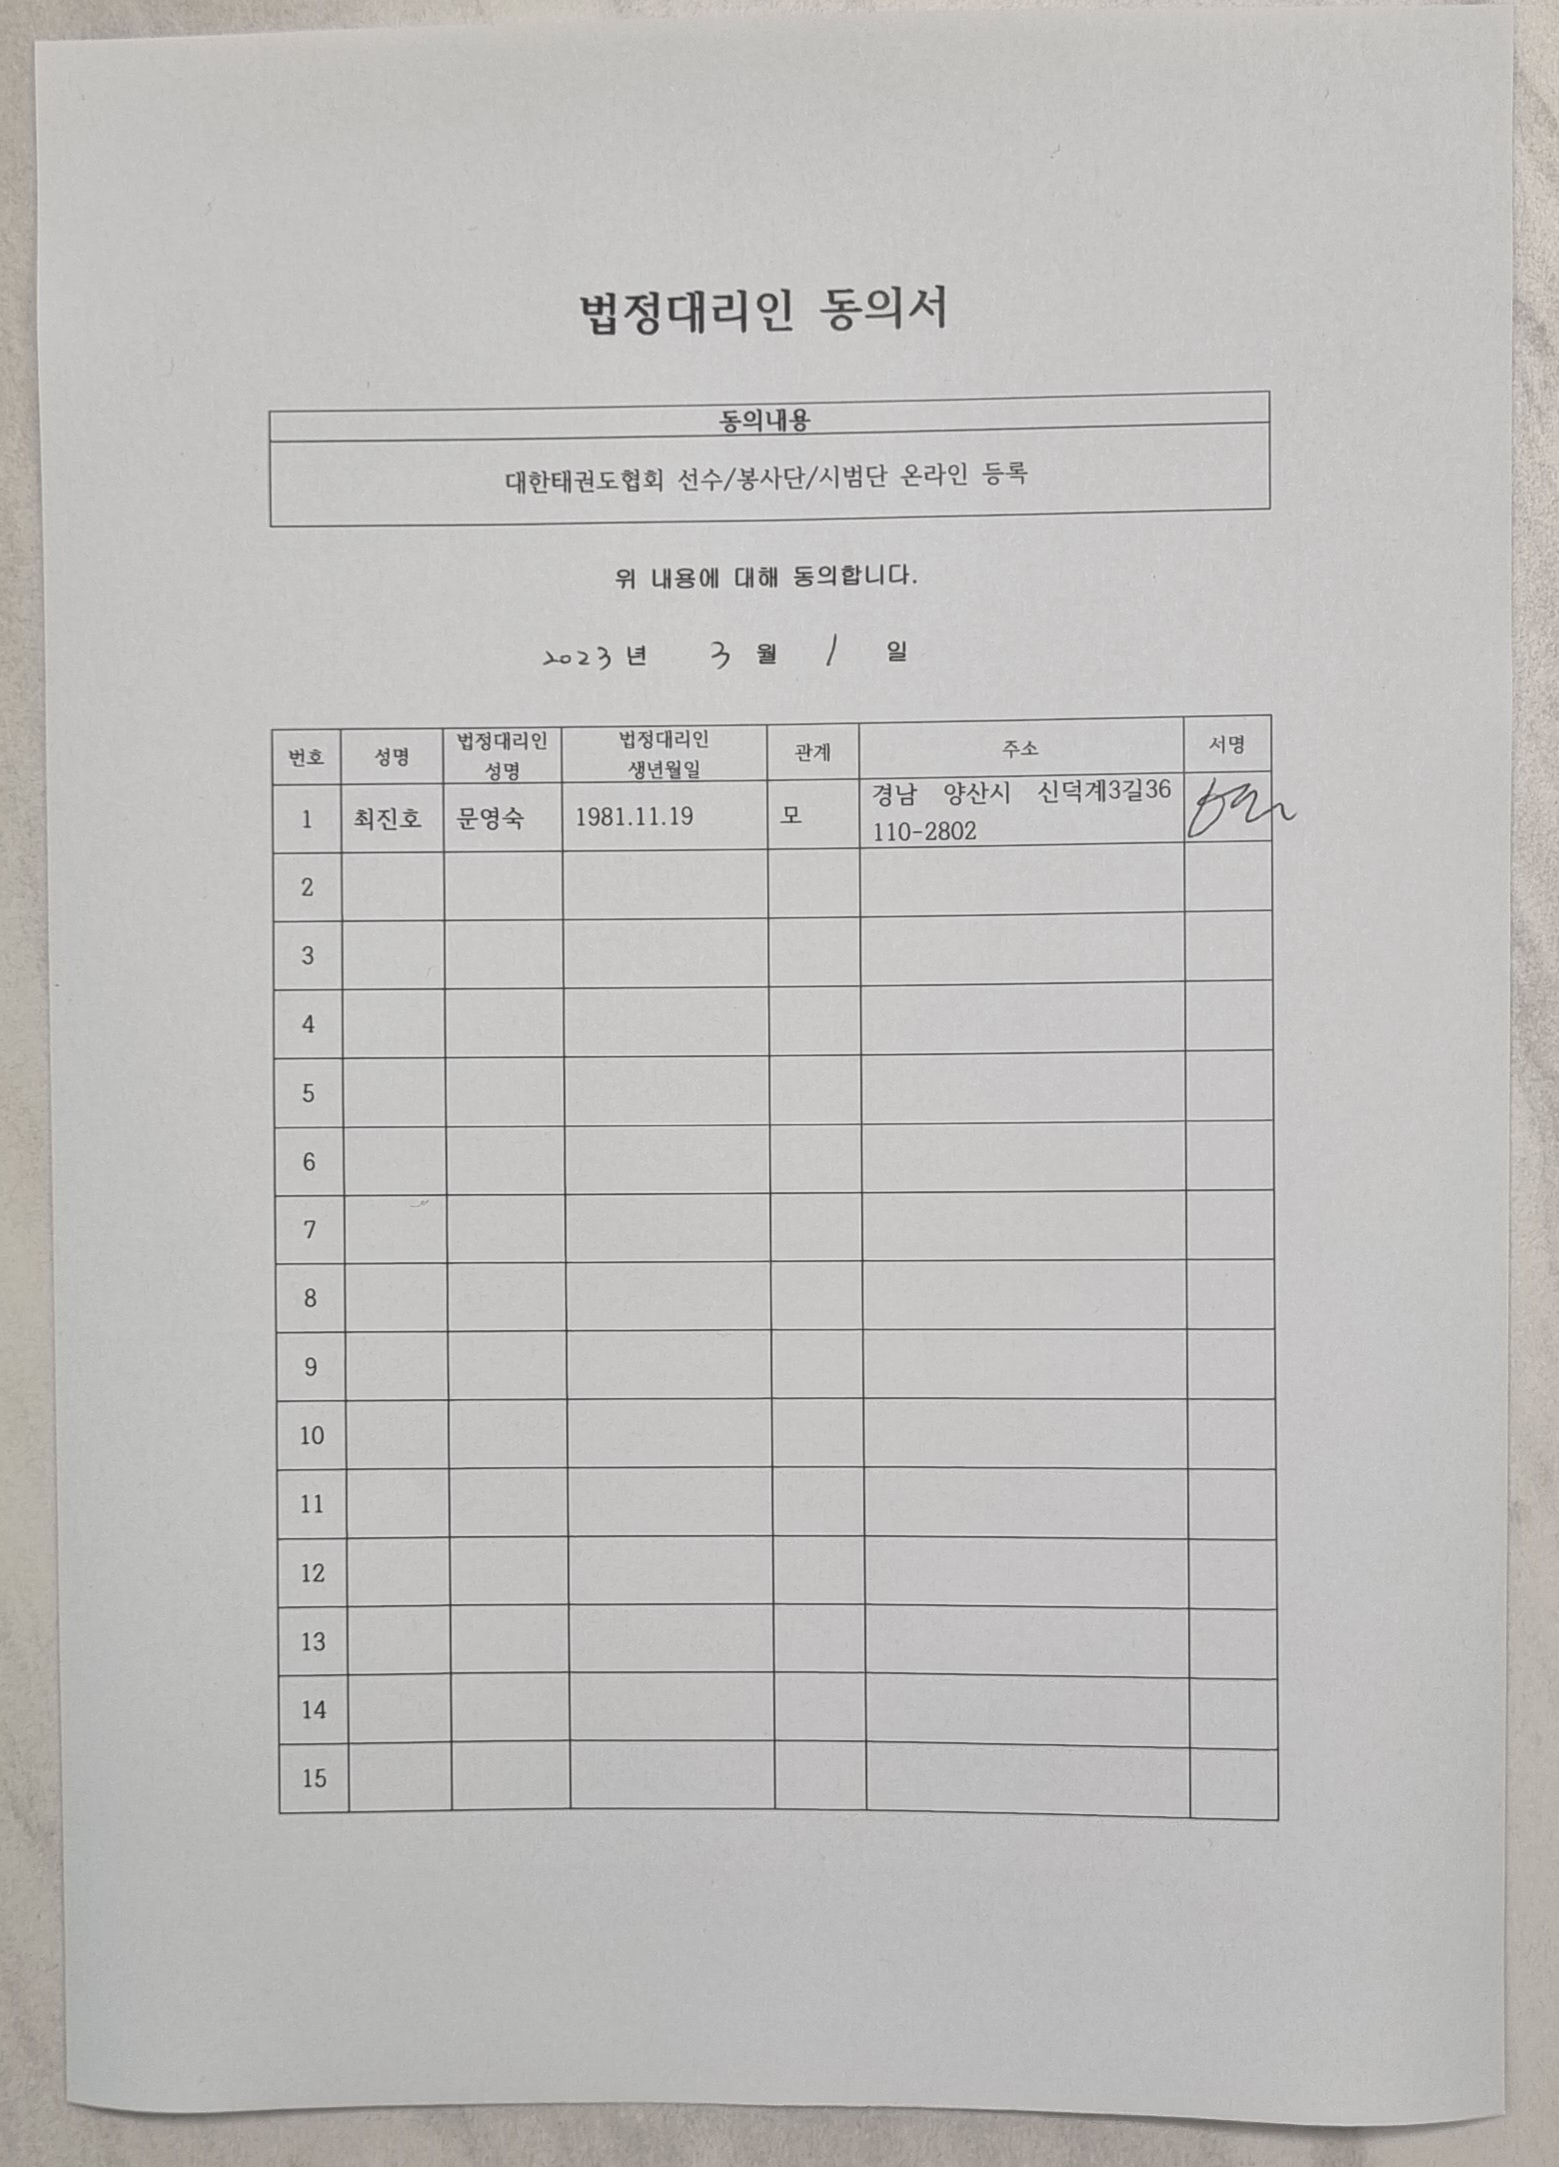 법정대리인 동의서
동의내용
대한태권도협회 선수/봉사단/시범단 온라인 등록
위 내용에 대해 동의합니다.
2023년 3 월 1 일
번호 성명 법정대리인 성명 법정대리인 생년월일 관계 주소 서명
1 최진호 문영숙 1981.11.19 모 경남 양산시 신덕계3길36
110-2802
2
3
4
5
6
7
8
9
10
11
12
13
14
15